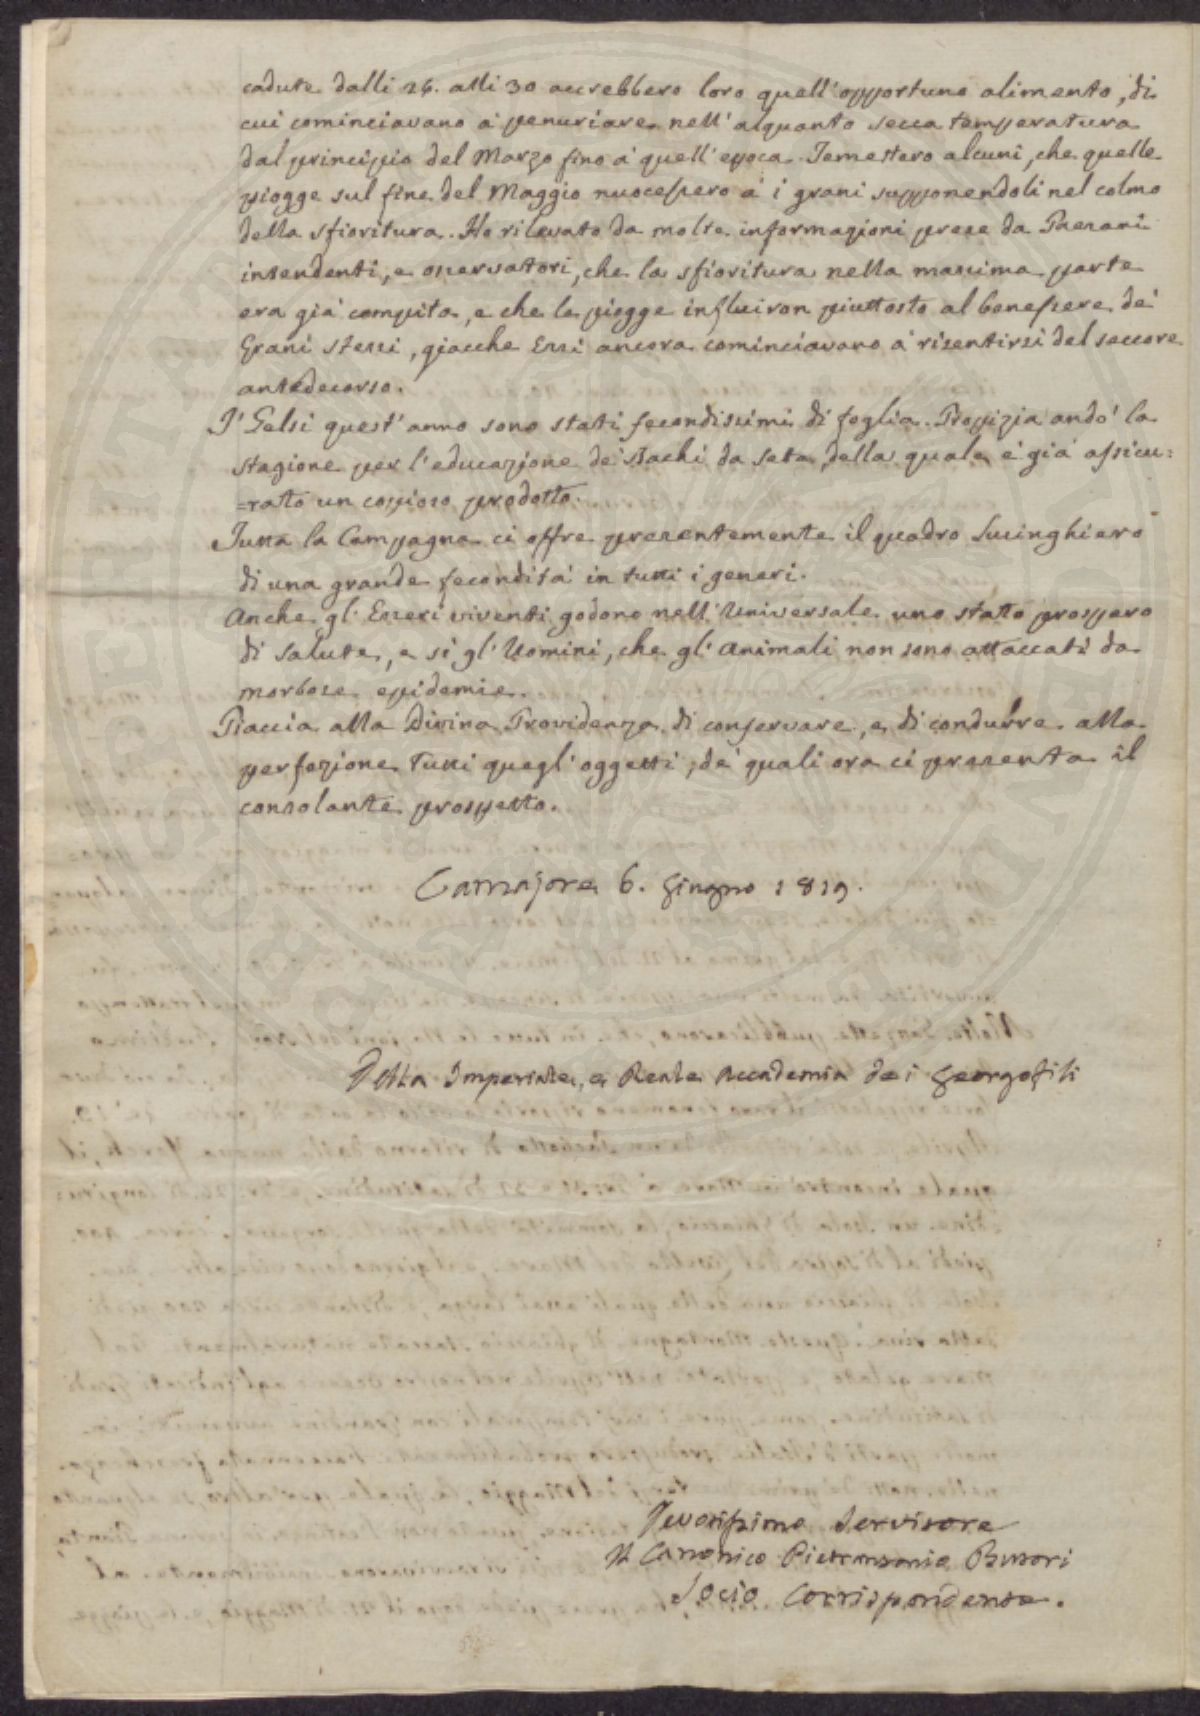 cadute dalli 26. alli 30 accrebbero loro quell'opportuno alimento, di
cui cominciavano a' penuriare nell'alquanto secca temperatura
dal principio del Marzo fino a' quell'epoca. Temettero alcuni, che quelle
piogge sul fine del Maggio nuocessero a' i grani supponendoli nel colmo
della sfioritura. Ho rilevato da molte informazioni prese da Paesani
intendenti, e osservatori, che la sfioritura nella massima parte
era già compita, e che le piogge influiron piuttosto al benessere de'
Grani stessi, giacche Essi ancora cominciavano a' risentirsi del seccore
antedecorso.
I' Gelsi quest'anno sono stati fecondissimi di foglia. Propizia andò la
stagione per l'educazione de' Bachi da seta, della quale è già assicu:
=rato un copioso prodotto.
Tutta la Campagna ci offre presentemente il quadro lusinghiero
di una grande fecondità in tutti i generi.
Anche gl'Esseri viventi godono nell'Universale uno stato prospero
di salute, e sì gl'Uomini, che gl'animali non sono attaccati da
morbose epidemie.
Piaccia alla Divina Providenza di conservare, e di condurre alla
perfezione tutti quegl'oggetti, de' quali ora ci presenta il
consolante prospetto.
Camajore 6. Giugno 1819.
Della Imperiale, e Reale Accademia dei Georgofili
Devotissimo Servitore
Il Canonico Pietrantonio Butori
Socio Corrispondente.